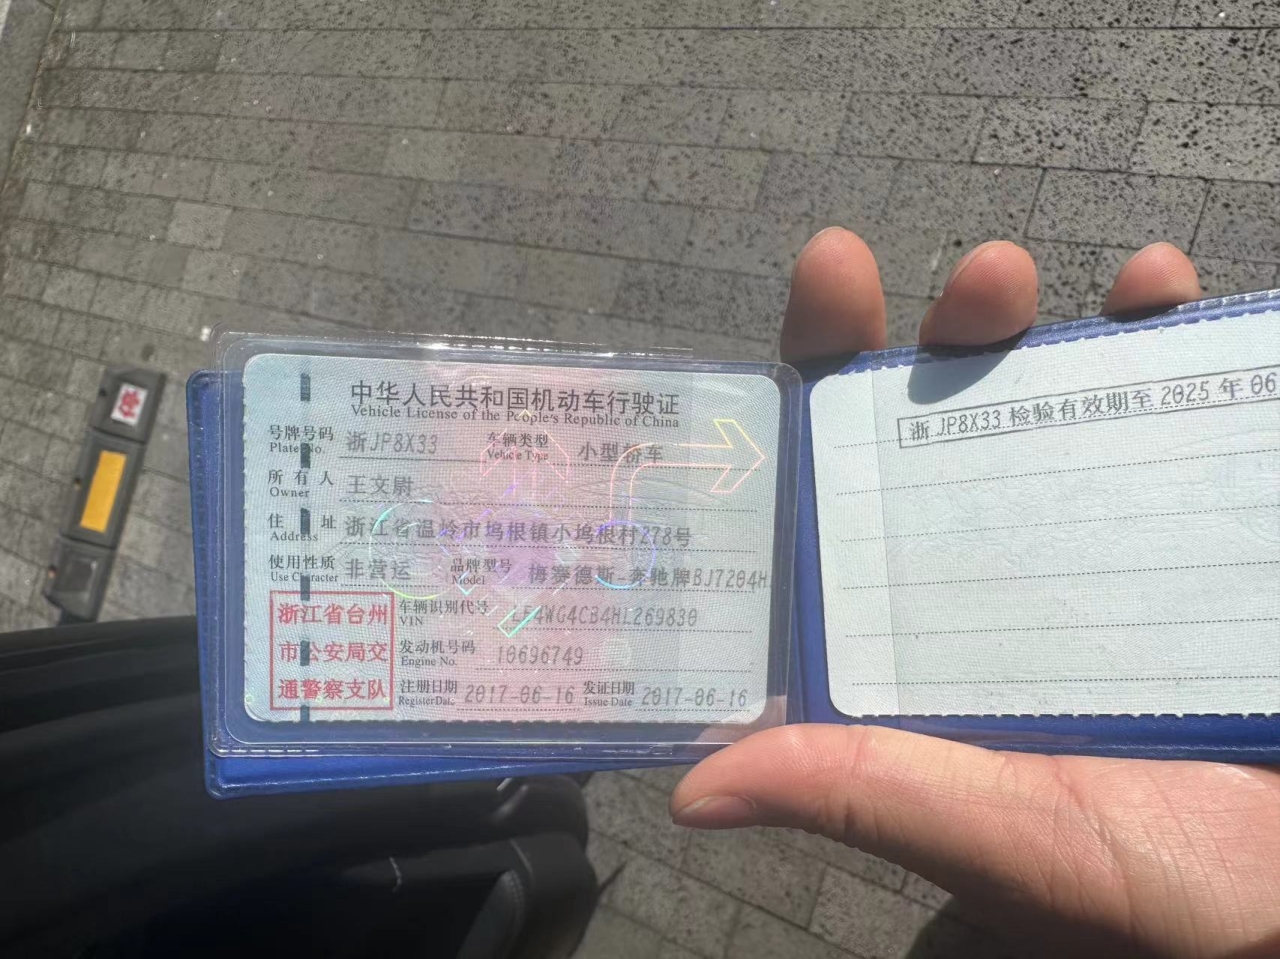 中华人民共和国机动车行驶证
Vehicle License of the People's Republic of China
号牌号码 浙JP8X33 车辆类型 小型轿车
Plate No. Vehicle Type
所有人 王文尉
Owner
住址 浙江省温岭市坞根镇小坞根村278号
Address
使用性质 非营运 品牌型号 梅赛德斯-奔驰牌BJ7204H
Use Character Model
浙江省台州
市公安局交
通警察支队
车辆识别代号 LE4WG4CB4HL269830
VIN
发动机号码 10696749
Engine No.
注册日期 2017-06-16 发证日期 2017-06-16
Register Date Issue Date
浙JP8X33 检验有效期至 2025 年 06